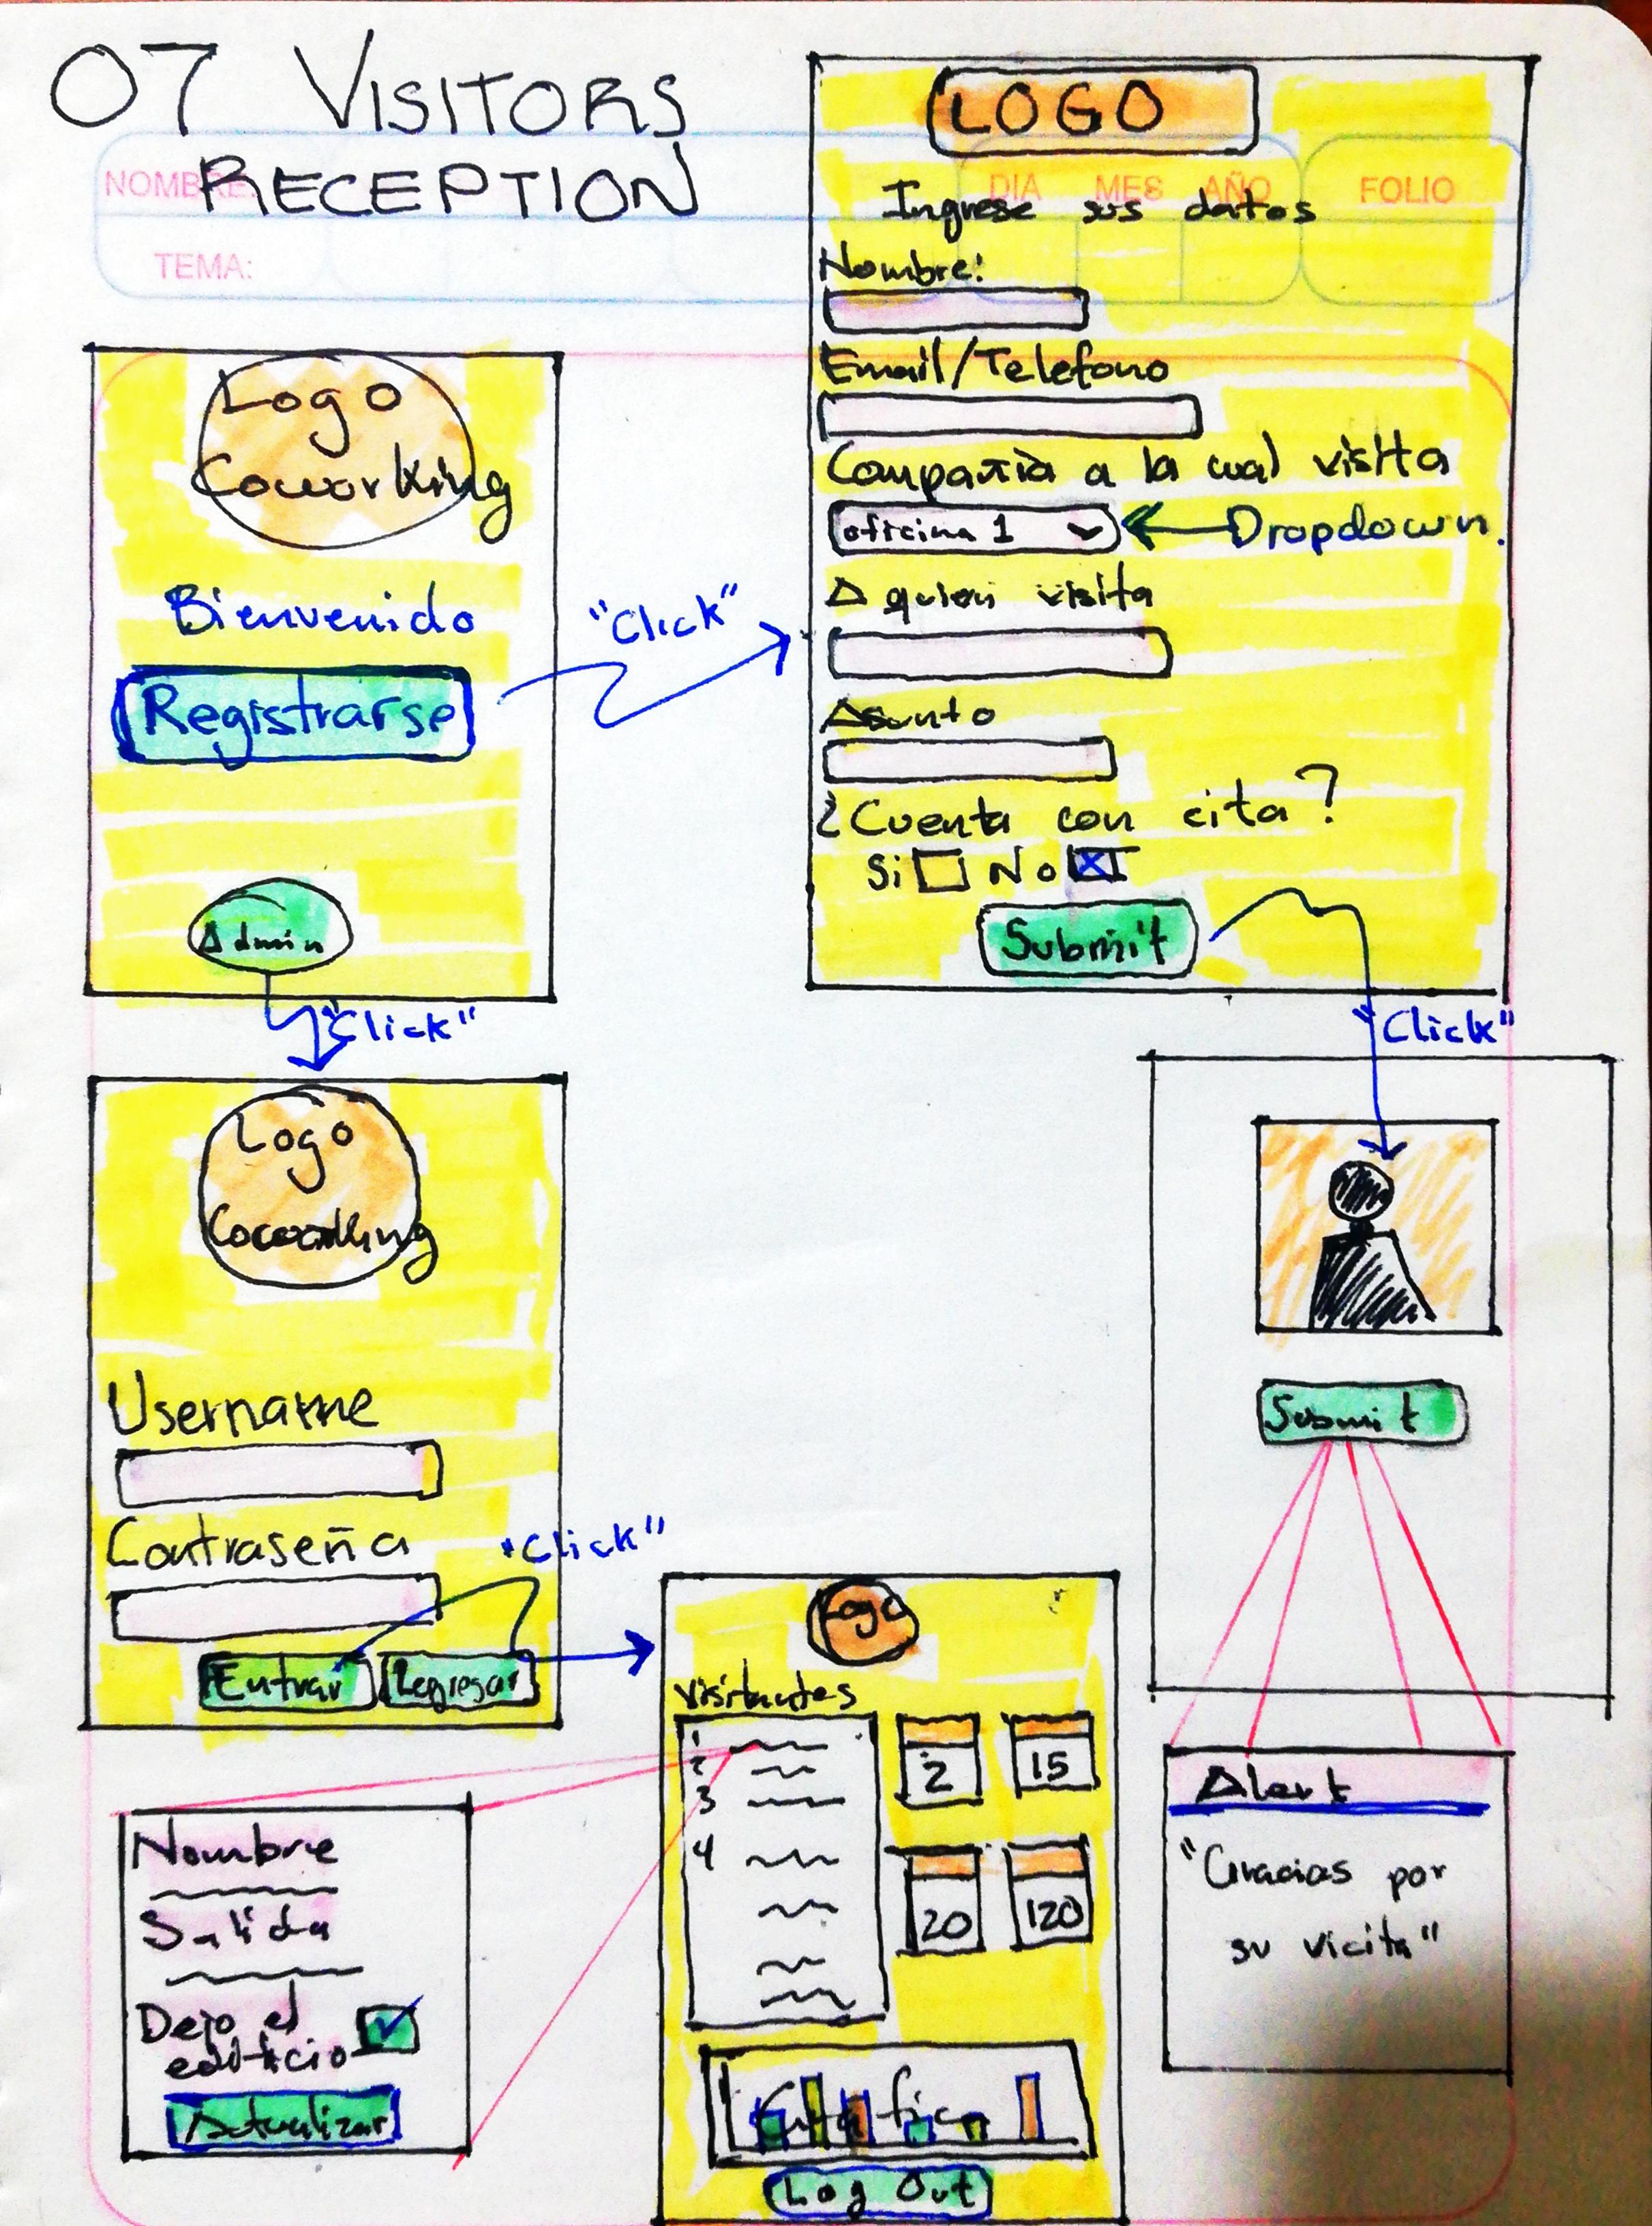 07 VISITORS
RECEPTION
NOMBRE
TEMA:
DIA MES AÑO FOLIO
LOGO
Ingrese sus datos
Nombre:
Email/Telefono
Compañia a la cual visita
oficina 1
Dropdown.
A quien visita
Asunto
¿Cuenta con cita?
Si No
Submit
"Click"
Logo
Coworking
Bienvenido
Registrarse
"Click"
Admin
"Click"
Logo
Coworking
Username
Contraseña
Entrar Regresar
"Click"
Submit
Alert
"Gracias por
su vicita"
Logo
Visitantes
1
2
3
4
2 15
20 120
Grafica
Log Out
Nombre
Salida
Dejo el
edificio
Actualizar